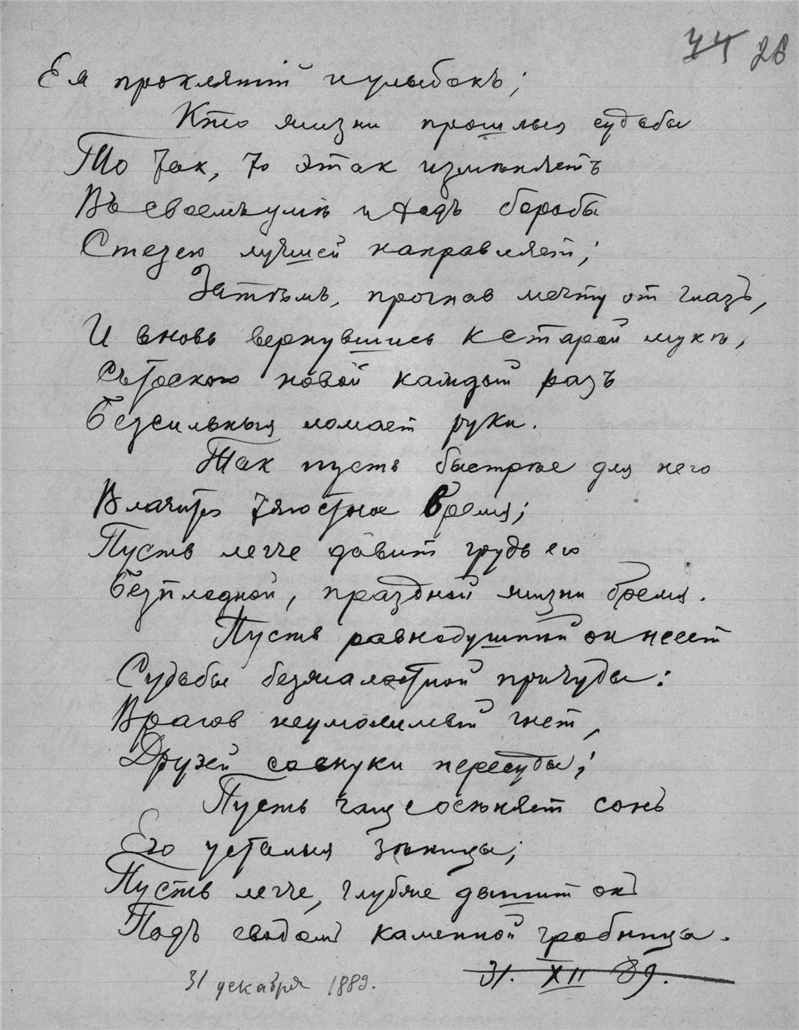 44 28
Ея проклятій и улыбокъ;
Кто жизни прошлыя судьбы
То так, то этак измѣняетъ
Въ своемъ умѣ и ходъ борьбы
Стезею лучшей направляет;
Затѣмъ, прогнав мечту от глазъ,
И вновь вернувшись к старой мукѣ,
Съ тоскою новой каждый разъ
Безсильныя ломает руки.
Так пусть быстрѣе для него
Влачится тягостное время;
Пусть легче давит грудь его
Безплодной, праздной жизни бремя.
Пусть равнодушнѣй он несет
Судьбы безжалостной причуды:
Врагов неумолимый гнет,
Друзей со скуки пересуды;
Пусть чаще осѣняет сонъ
Его усталыя зѣницы;
Пусть легче, глубже дышит он
Подъ сводом каменной гробницы.
31. XII 89.
31 декабря 1889.